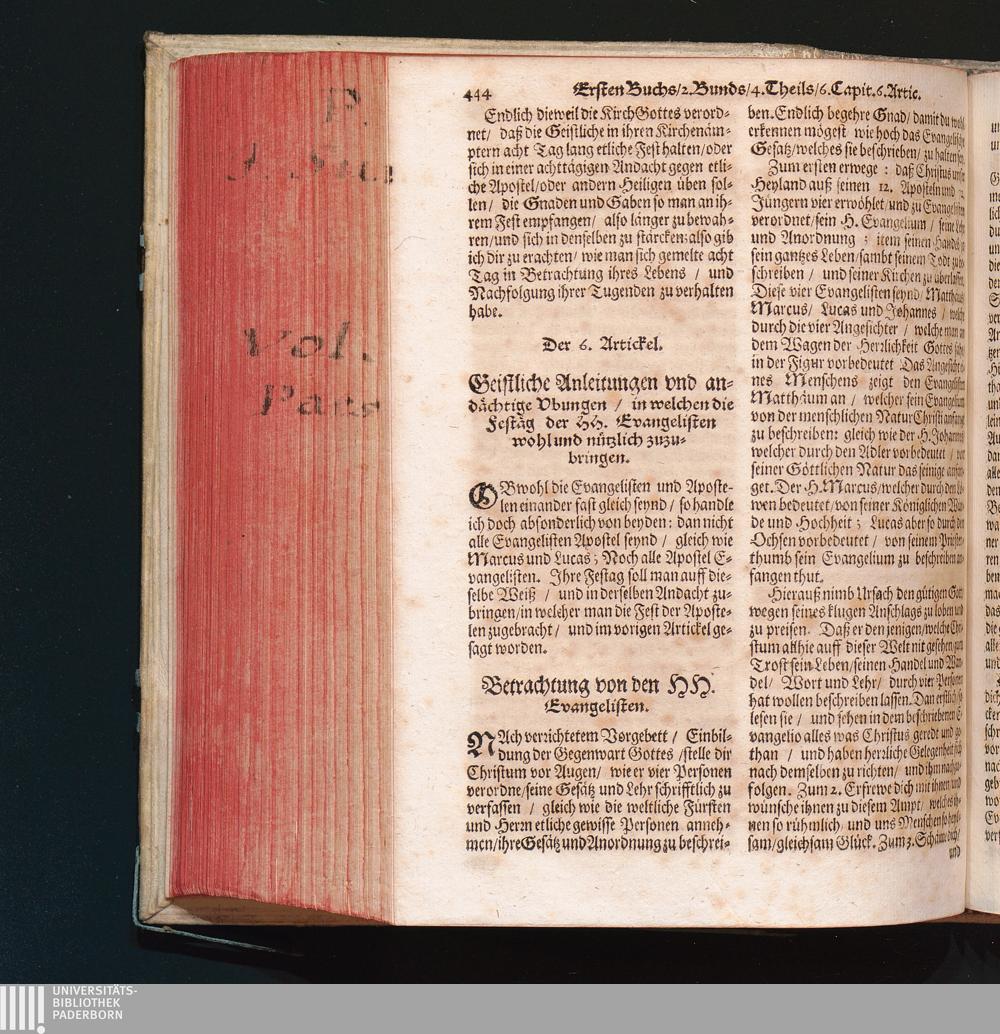 P.
Vol.
Pars
444
Ersten Buchs/2. Bunds/4. Theils/6. Capit. 6. Artic.
Endlich dieweil die Kirch Gottes verord-
net/ daß die Geistliche in ihren Kirchenäm-
ptern acht Tag lang etliche Fest halten/oder
sich in einer achttägigen Andacht gegen etli-
che Apostel/oder andern Heiligen üben sol-
len/ die Gnaden und Gaben so man an ih-
rem Fest empfangen/ also länger zu bewah-
ren/und sich in denselben zu stärcken: also gib
ich dir zu erachten/ wie man sich gemelte acht
Tag in Betrachtung ihres Lebens / und
Nachfolgung ihrer Tugenden zu verhalten
habe.
Der 6. Artickel.
Geistliche Anleitungen vnd an-
dächtige Vbungen / in welchen die
Festäg der HH. Evangelisten
wohl und nützlich zuzu-
bringen.
OBwohl die Evangelisten und Aposte-
len einander fast gleich seynd / so handle
ich doch absonderlich von beyden: dan nicht
alle Evangelisten Apostel seynd / gleich wie
Marcus und Lucas; Noch alle Apostel E-
vangelisten. Ihre Festag soll man auff die-
selbe Weiß / und in derselben Andacht zu-
bringen/in welcher man die Fest der Aposte-
len zugebracht / und im vorigen Artickel ge-
sagt worden.
Betrachtung von den HH.
Evangelisten.
NAch verrichtetem Vorgebett / Einbil-
dung der Gegenwart Gottes /stelle dir
Christum vor Augen/ wie er vier Personen
verordne/seine Gesätz und Lehr schrifftlich zu
verfassen / gleich wie die weltliche Fürsten
und Herrn etliche gewisse Personen anneh-
men/ihre Gesätz und Anordnung zu beschrei-
ben. Endlich begehre Gnad/ damit du
erkennen mögest wie hoch das Evangelische
Gesätz/welches sie beschrieben/ zu halten
Zum ersten erwege : daß Christus unser
Heyland auß seinen 12. Aposteln und
Jüngern vier erwöhlet/und zu Evangelisten
verordnet/sein H. Evangelium / seine Lehr
und Anordnung ; item seinen Handel
sein gantzes Leben/sambt seinem Todt zu
schreiben / und seiner Kirchen zu überlassen.
Diese vier Evangelisten seynd/ Matthäus
Marcus/ Lucas und Johannes / welche
durch die vier Angesichter / welche man an
dem Wagen der Herrlichkeit Gottes
in der Figur vorbedeutet Das Angesicht
nes Menschens zeigt den Evangelisten
Matthäum an / welcher sein Evangelium
von der menschlichen Natur Christi anfangt
zu beschreiben: gleich wie der H. Johannes
welcher durch den Adler vorbedeutet / von
seiner Göttlichen Natur das seinige anfan-
get. Der H. Marcus/welcher durch den Lö-
wen bedeutet/von seiner Königlichen Wür-
de und Hochheit ; Lucas aber so durch den
Ochsen vorbedeutet / von seinem Priester-
thumb sein Evangelium zu beschreiben an-
fangen thut.
Hierauß nimb Ursach den gütigen Gott
wegen seines klugen Anschlags zu loben und
zu preisen. Daß er den jenigen/welche Chri-
stum allhie auff dieser Welt nit gesehen/zum
Trost sein Leben/seinen Handel und Wan-
del/ Wort und Lehr/ durch vier Personen
hat wollen beschreiben lassen. Dan erstlich
lesen sie / und sehen in dem beschriebenen E-
vangelio alles was Christus geredt und ge-
than / und haben herzliche Gelegenheit sich
nach demselben zu richten/ und ihm nachzu-
folgen. Zum 2. Erfrewe dich mit ihnen und
wünsche ihnen zu diesem Ampt/ welches ih-
nen so rühmlich/ und uns Menschen so heyl-
sam/gleichsam Glück. Zum 3. Schäme dich/
und
UNIVERSITÄTS-
BIBLIOTHEK
PADERBORN